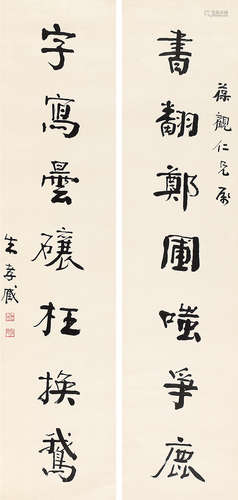 葆觀仁兄屬
書翻鄭圃嗤爭鹿
字寫曇枉換鵞
朱孝臧